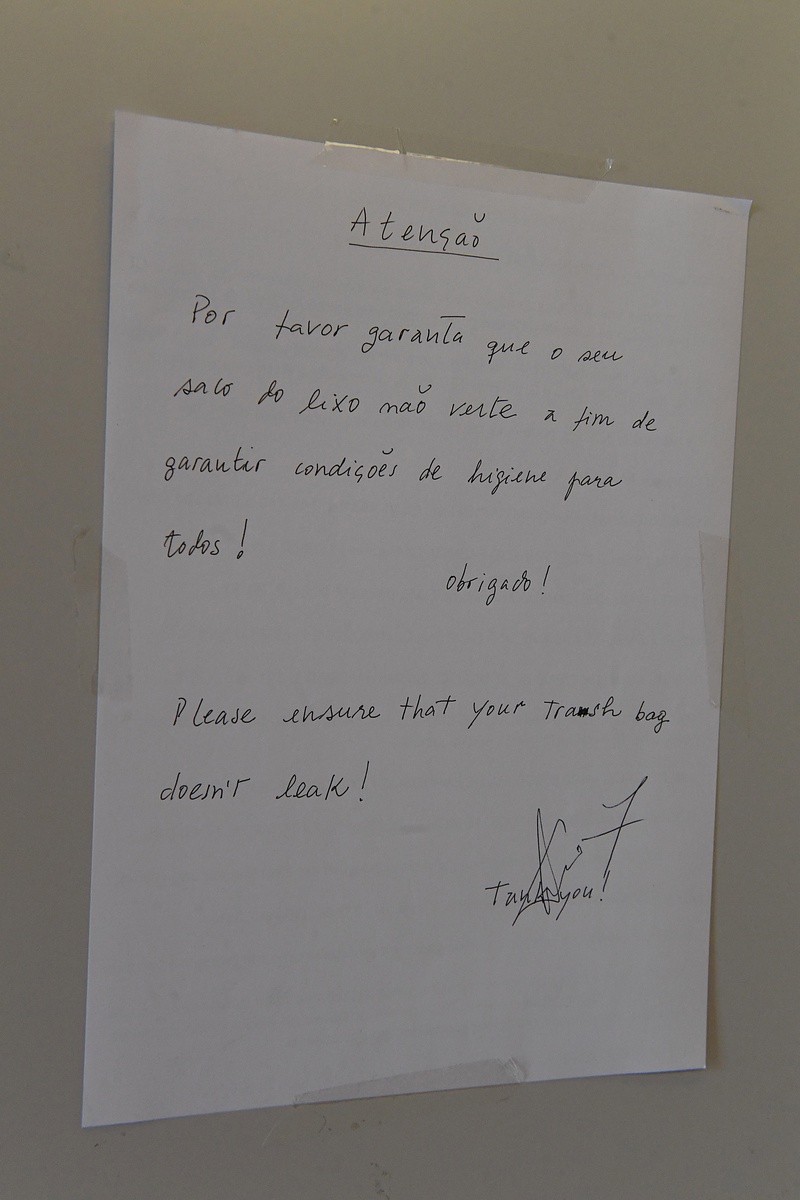 Atenção
Por favor garanta que o seu
saco do lixo não verte a fim de
garantir condições de higiene para
todos!
obrigado!
Please ensure that your trash bag
doesn't leak!
Tank you!